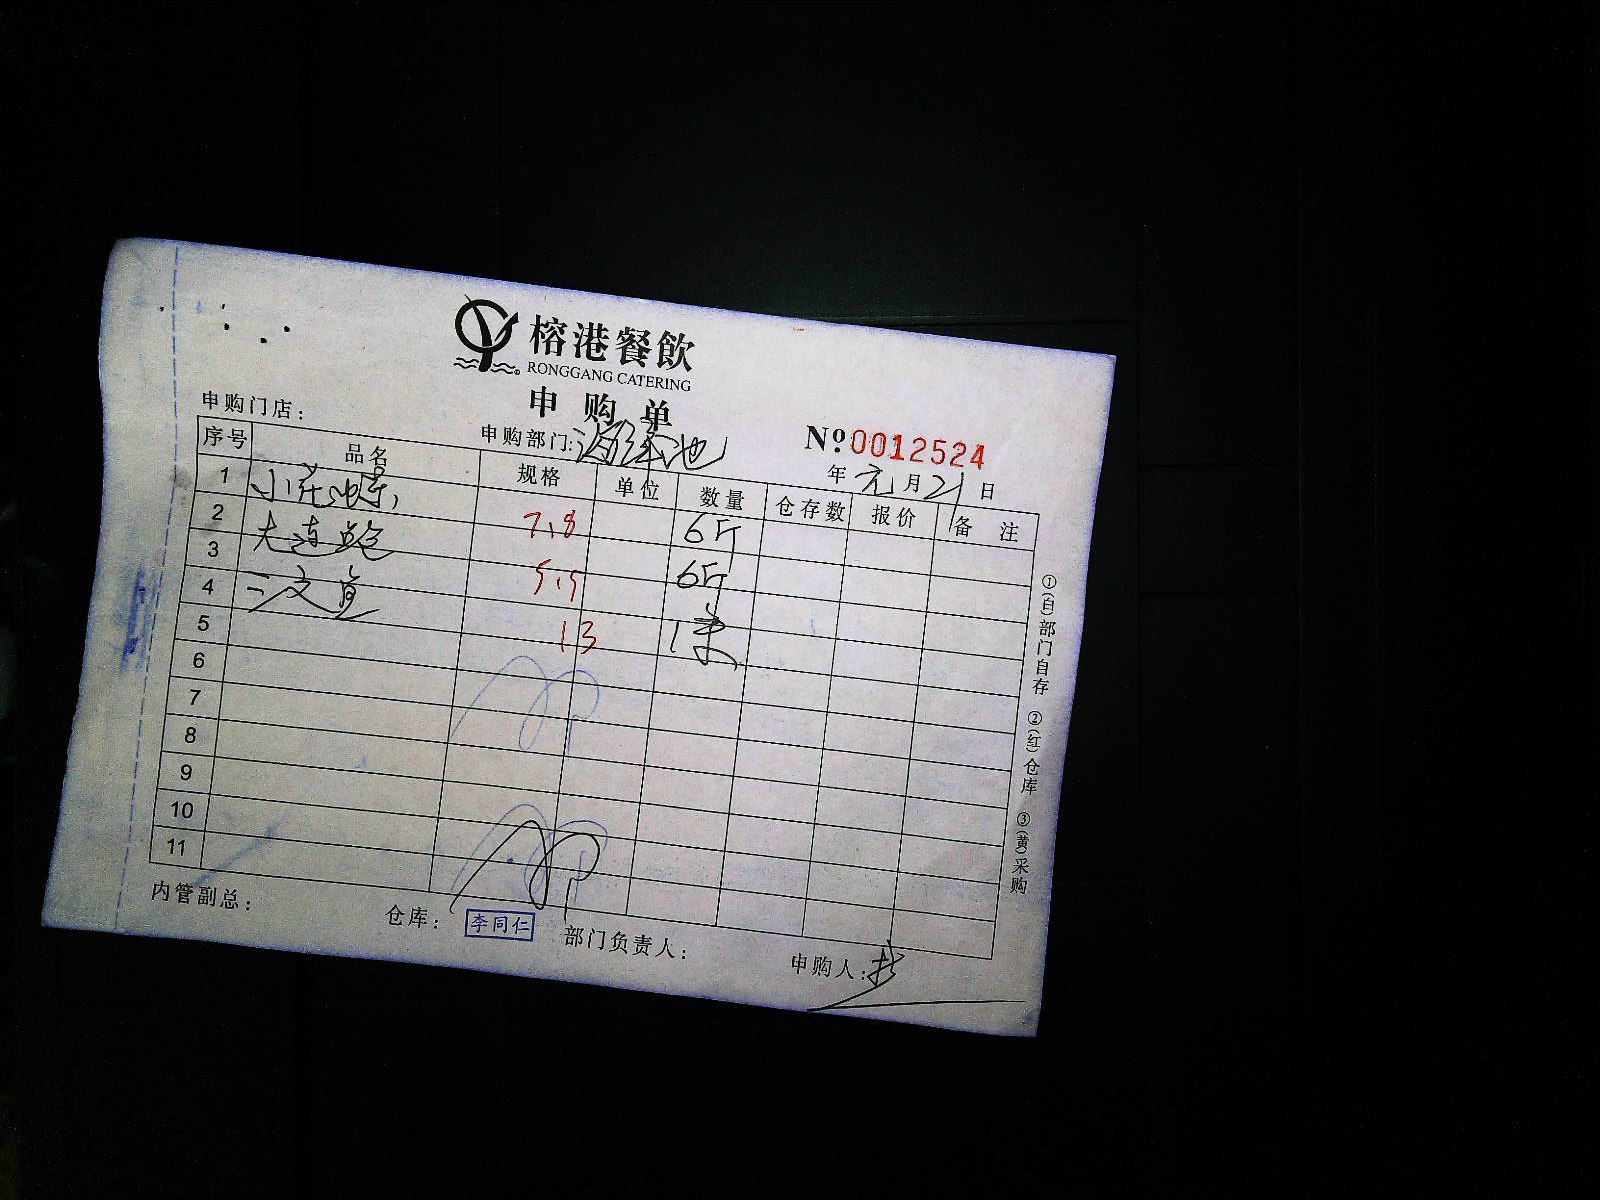 榕港餐飲
RONGGANG CATERING
申购单
申购门店：
申购部门：海鲜池
№0012524
年元月21日
序号 品名 规格 单位 数量 仓存数 报价 备注
1 小花
2 大连鲍 7.8 6斤
3 三文鱼 5.5 6斤
4 13 1条
5
6
7
8
9
10
11
①(白)部门自存 ②(红)仓库 ③(黄)采购
内管副总：
仓库：李同仁
部门负责人：
申购人：